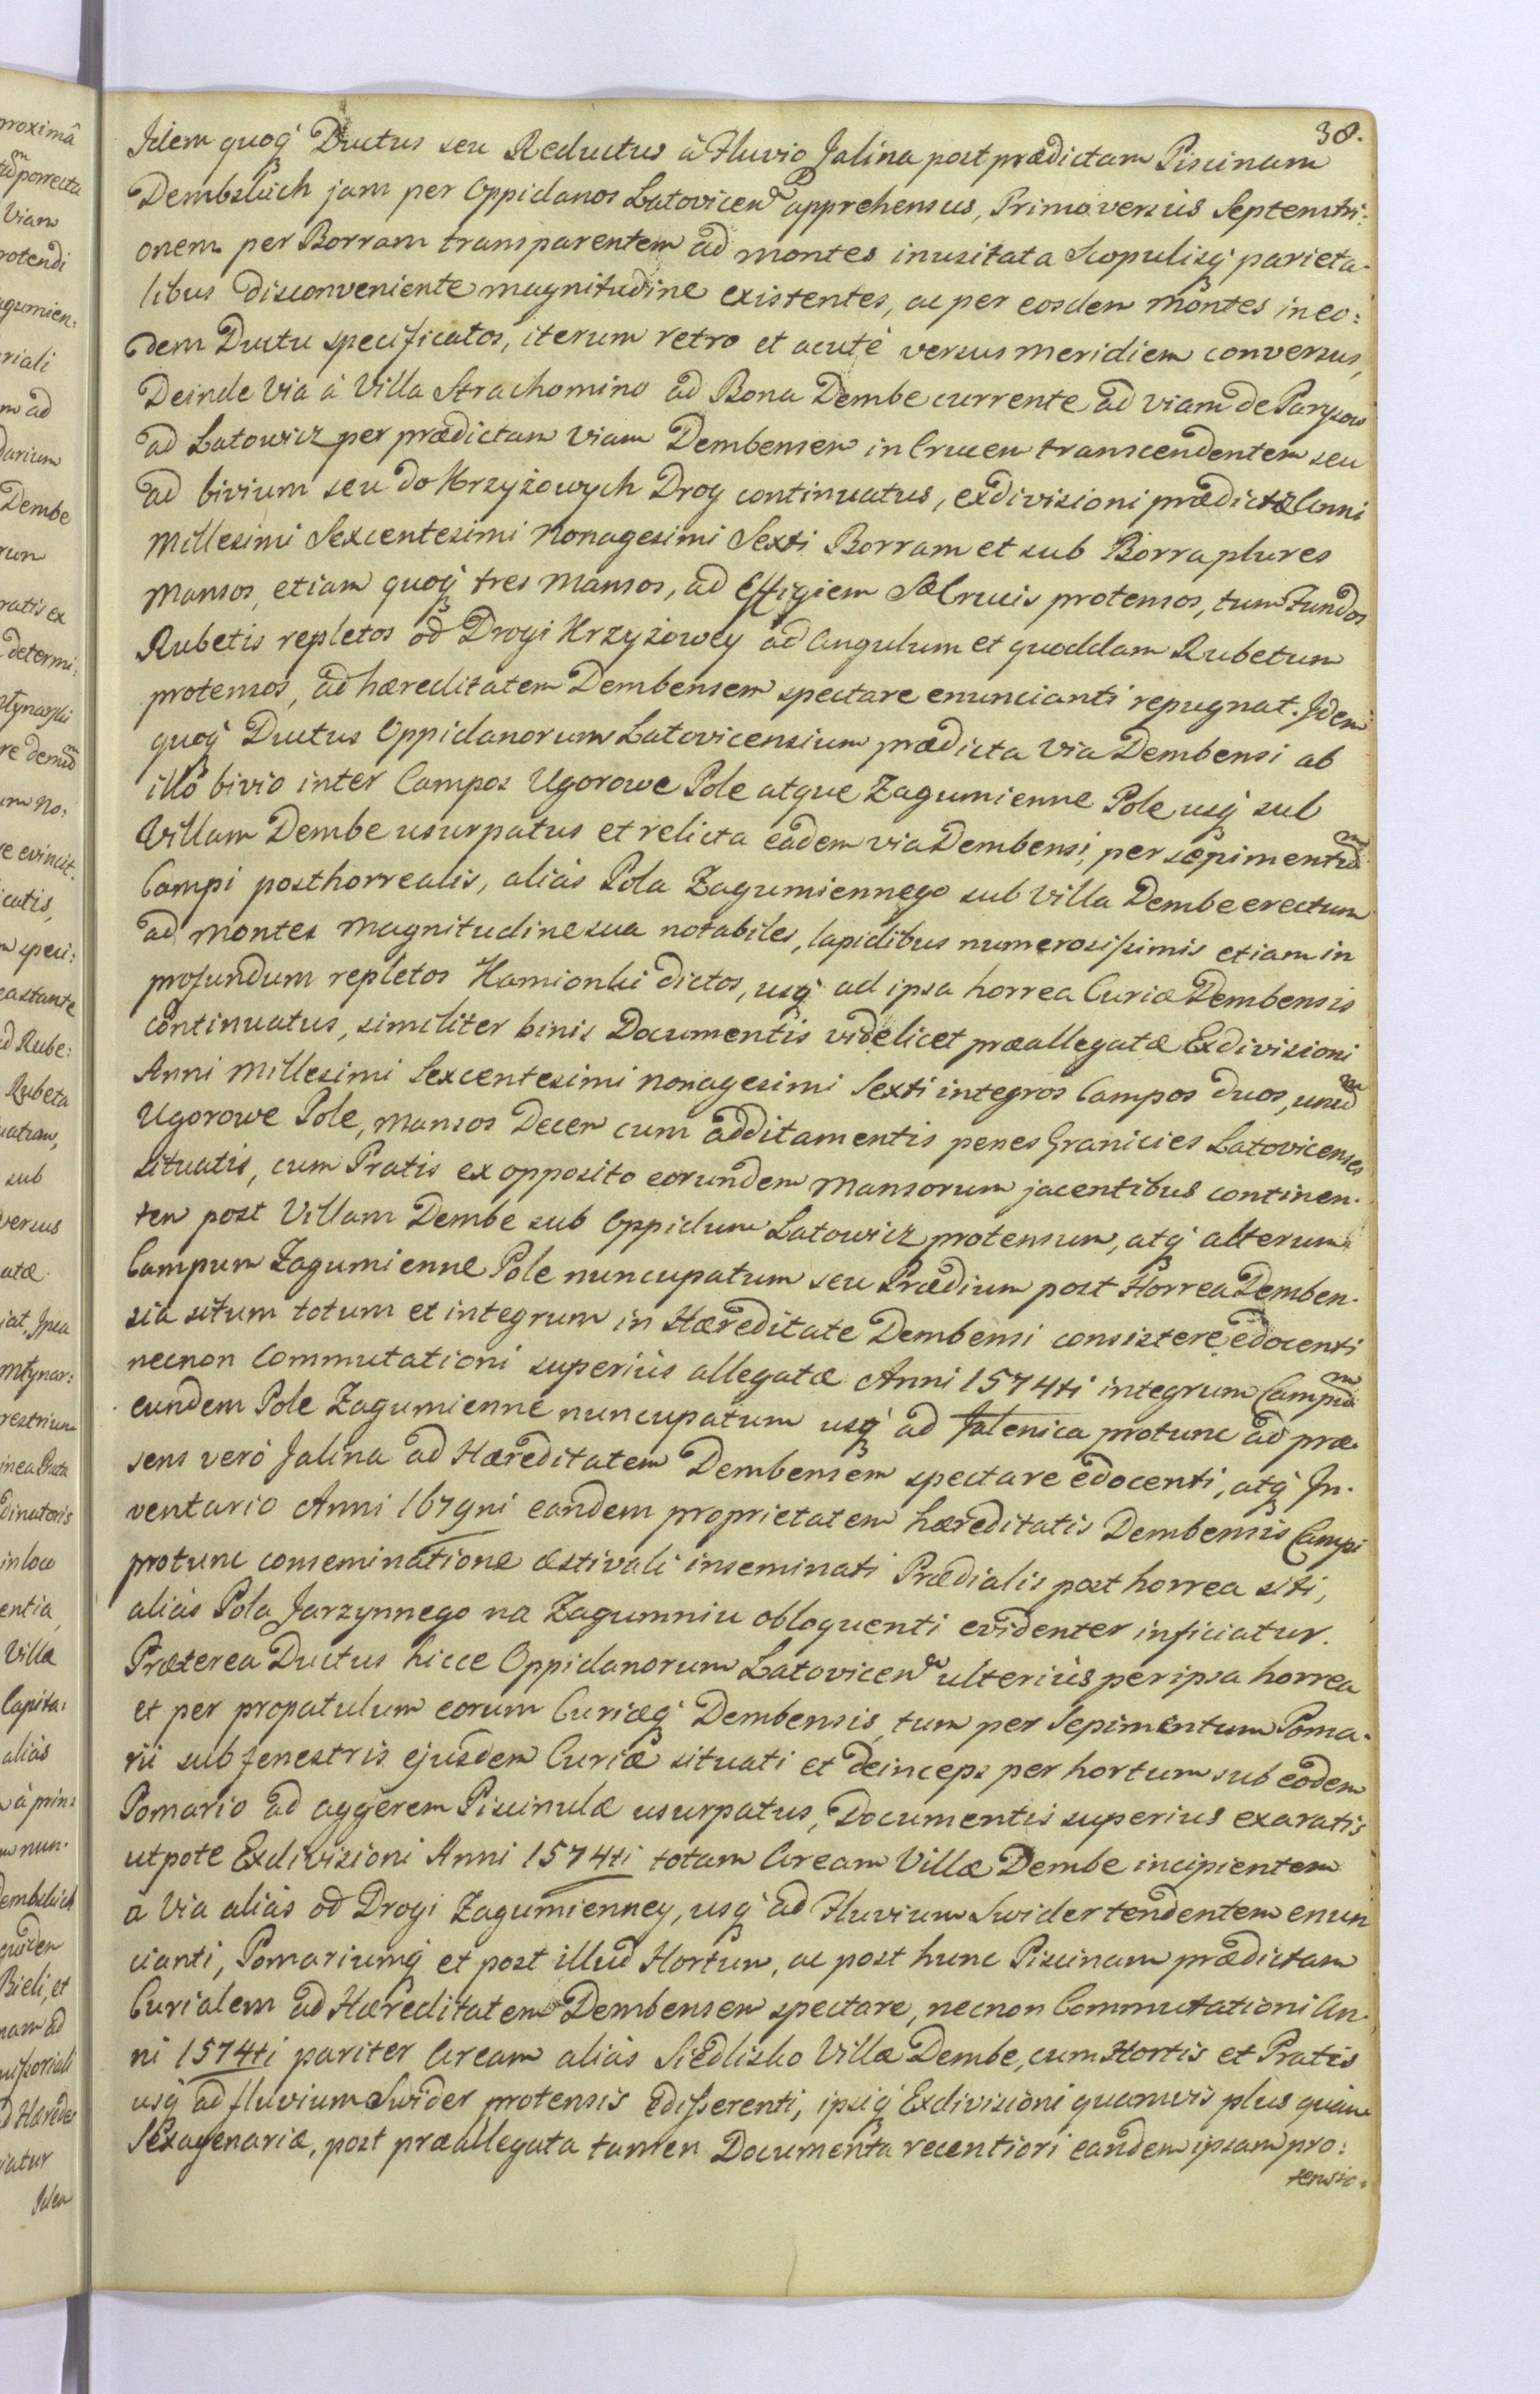 38.
Idem quoq́ Ductus seu Reductus à Fluvio Jalina post prædictam Piscinam
Dembsluch jam per Oppidanos Latovicen̄ apprehensus, Primo versùs Septemtri:
onem per Borram transparentem ad montes inusitata Scopulisq́ parieta-
libus disconveniente magnitudine existentes, ac per eosdem montes in eo:
dem Ductu specificatos, iterum retro et acutè versus meridiem conversus,
Deinde Via à Villa Strachomino ad Bona Dembe currente ad viam de Paryzow
ad Latowicz per prædictam Viam Dembensem in Crucem transcendentem seu
ad bivium seu do Krzyżowych Drog continuatus, exdivisioni prædictæ Anni
Millesimi Sexcentesimi Nonagesimi Sexti Borram et sub Borra plures
Mansos, etiam quoq́ tres Mansos, ad Effigiem S Crucis protensos, tum Fundos
Rubetis repletos od Drogi Krzyżowey ad Angulum et quoddam Rubetum
protensos, ad hæreditatem Dembensem spectare enuncianti repugnat. Idem
quoq́ Ductus Oppidanorum Latovicensium prædicta Via Dembensi ab
illo bivio inter Campos Ugorowe Pole atque Zagumienne Pole usq́ sub
Villam Dembe usurpatus et relicta eadem via Dembensi, per sæpimentū
Campi posthorrealis, aliàs Pola Zagumiennego sub Villa Dembe erectum
ad montes magnitudine sua notabiles, lapidibus numerosissimis etiam in
profundum repletos Kamionki dictos, usq́ ad ipsa horrea Curiæ Dembensis
continuatus, similiter binis Documentis videlicet præallegatæ Exdivisioni
Anni Millesimi Sexcentesimi nonagesimi Sexti integros Campos duos, unū
Ugorowe Pole, Mansos Decem cum additamentis penes Granicies Latovicenses
situatis, cum Pratis ex opposito eorundem Mansorum jacentibus continen-
tem post Villam Dembe sub Oppidum Latowicz protensum, atq́ alterum
Campum Zagumienne Pole nuncupatum seu Prædium post Horrea Demben-
sia situm totum et integrum in Hæreditate Dembensi consistere edocenti
necnon Commutationi superiùs allegatæ Anni 1574ti integrum Campū
eundem Pole Zagumienne nuncupatum usq́ ad Jalenica protunc ad præ-
sens verò Jalina ad Hæreditatem Dembensem spectare edocenti, atq́ In-
ventario Anni 1679ni eandem proprietatem hæreditatis Dembensis Campi
protunc conseminatione æstivali inseminati Prædialis post horrea siti,
aliàs Pola Jarzynnego na Zagumniu obloquenti evidenter inficiatur.
Præterea Ductus hicce Oppidanorum Latovicen̄ ulteriùs per ipsa horrea
et per propatulum eorum Curiæq́ Dembensis, tum per Sepimentum Poma-
rii sub fenestris ejusdem Curiæ situati et deinceps per hortum sub eodem
Pomario ad aggerem Piscinulæ usurpatus, Documentis superius exaratis
utpote Exdivisioni Anni 1574ti totam Aream Villæ Dembe incipientem
a Via aliàs od Drogi Zagumienney, usq́ ad Fluvium Swider tendentem enun
cianti, Pomariumq́ et post illud Hortum, ac post hunc Piscinam prædictam
Curialem ad Hæreditatem Dembensem spectare, necnon Commutationi An-
ni 1574ti pariter Aream aliàs Siedlisko Villæ Dembe, cum Hortis et Pratis
usq́ ad fluvium Swider protensis edisserenti, ipsiq́ Exdivisioni quamvis plus quàm
Sexagenariæ, post præallegata tamen Documenta recentiori eandem ipsam pro:
tensio-